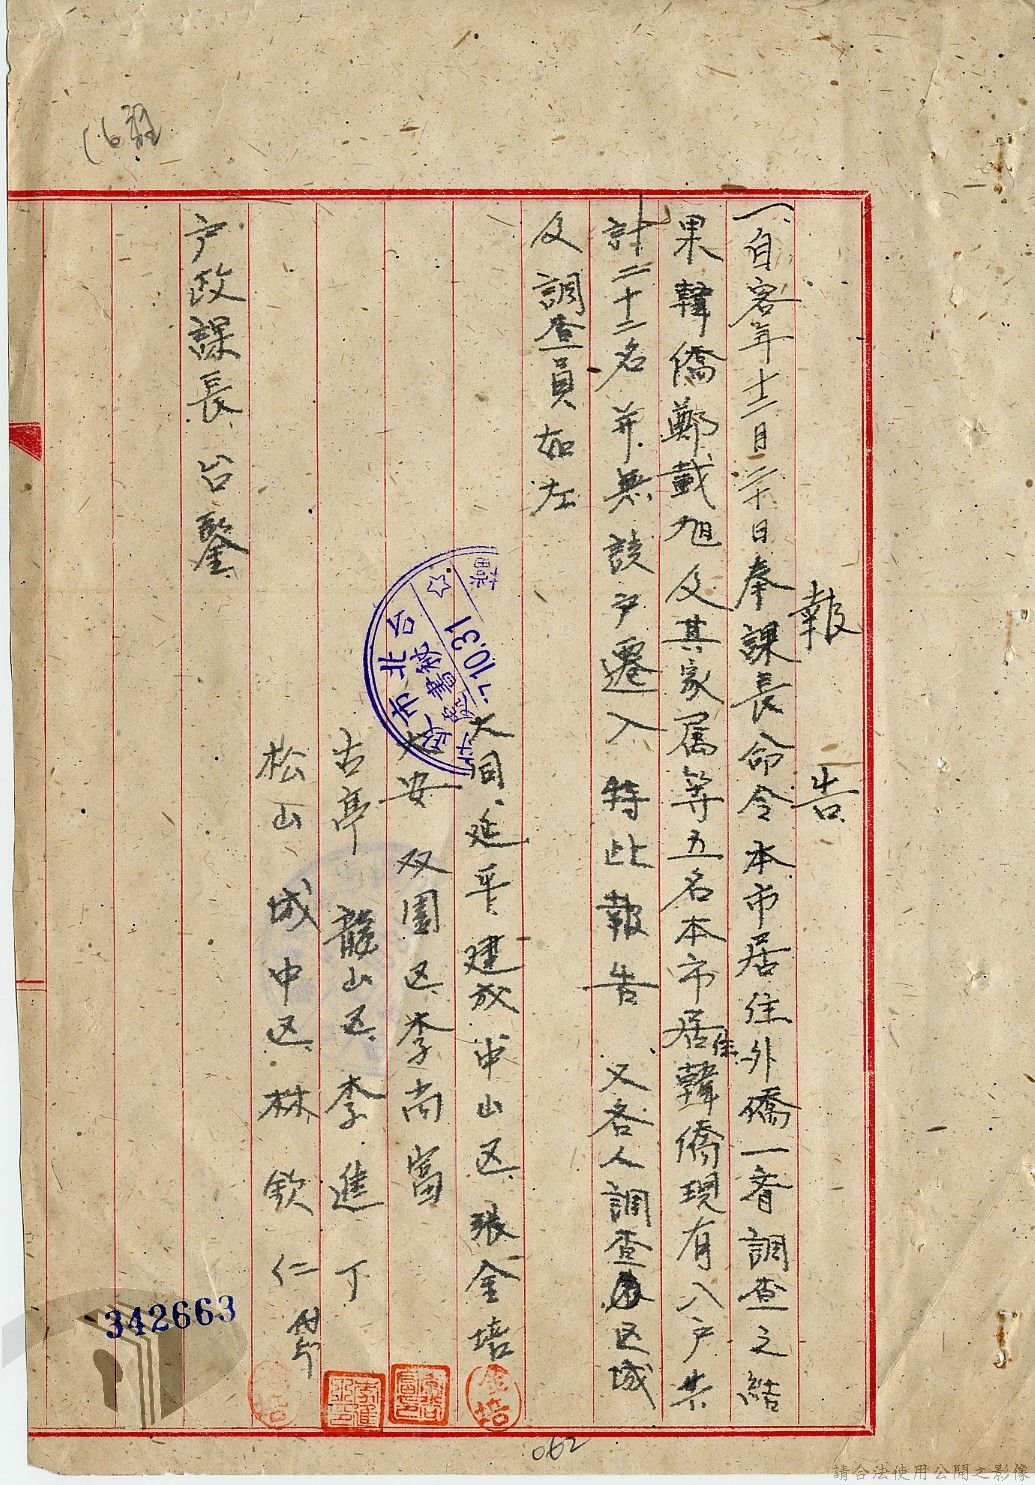 報告
一、自客年十二月二十日奉課長命令本市居住外僑一着調查之結
果韓僑鄭載旭及其家屬等五名本市居住韓僑現有八戶共
計二十二名並無該戶遷入特此報告 又各人調查區域
及調查員如左
大同、延平、建成、中山区、張金培
大安 双園区、李尚富
古亭 龍山区、李進丁
松山 城中区、林欽仁
戶政課長 台鑒
台北市政
10.31
342663
062
金培
請合法使用公開之影像